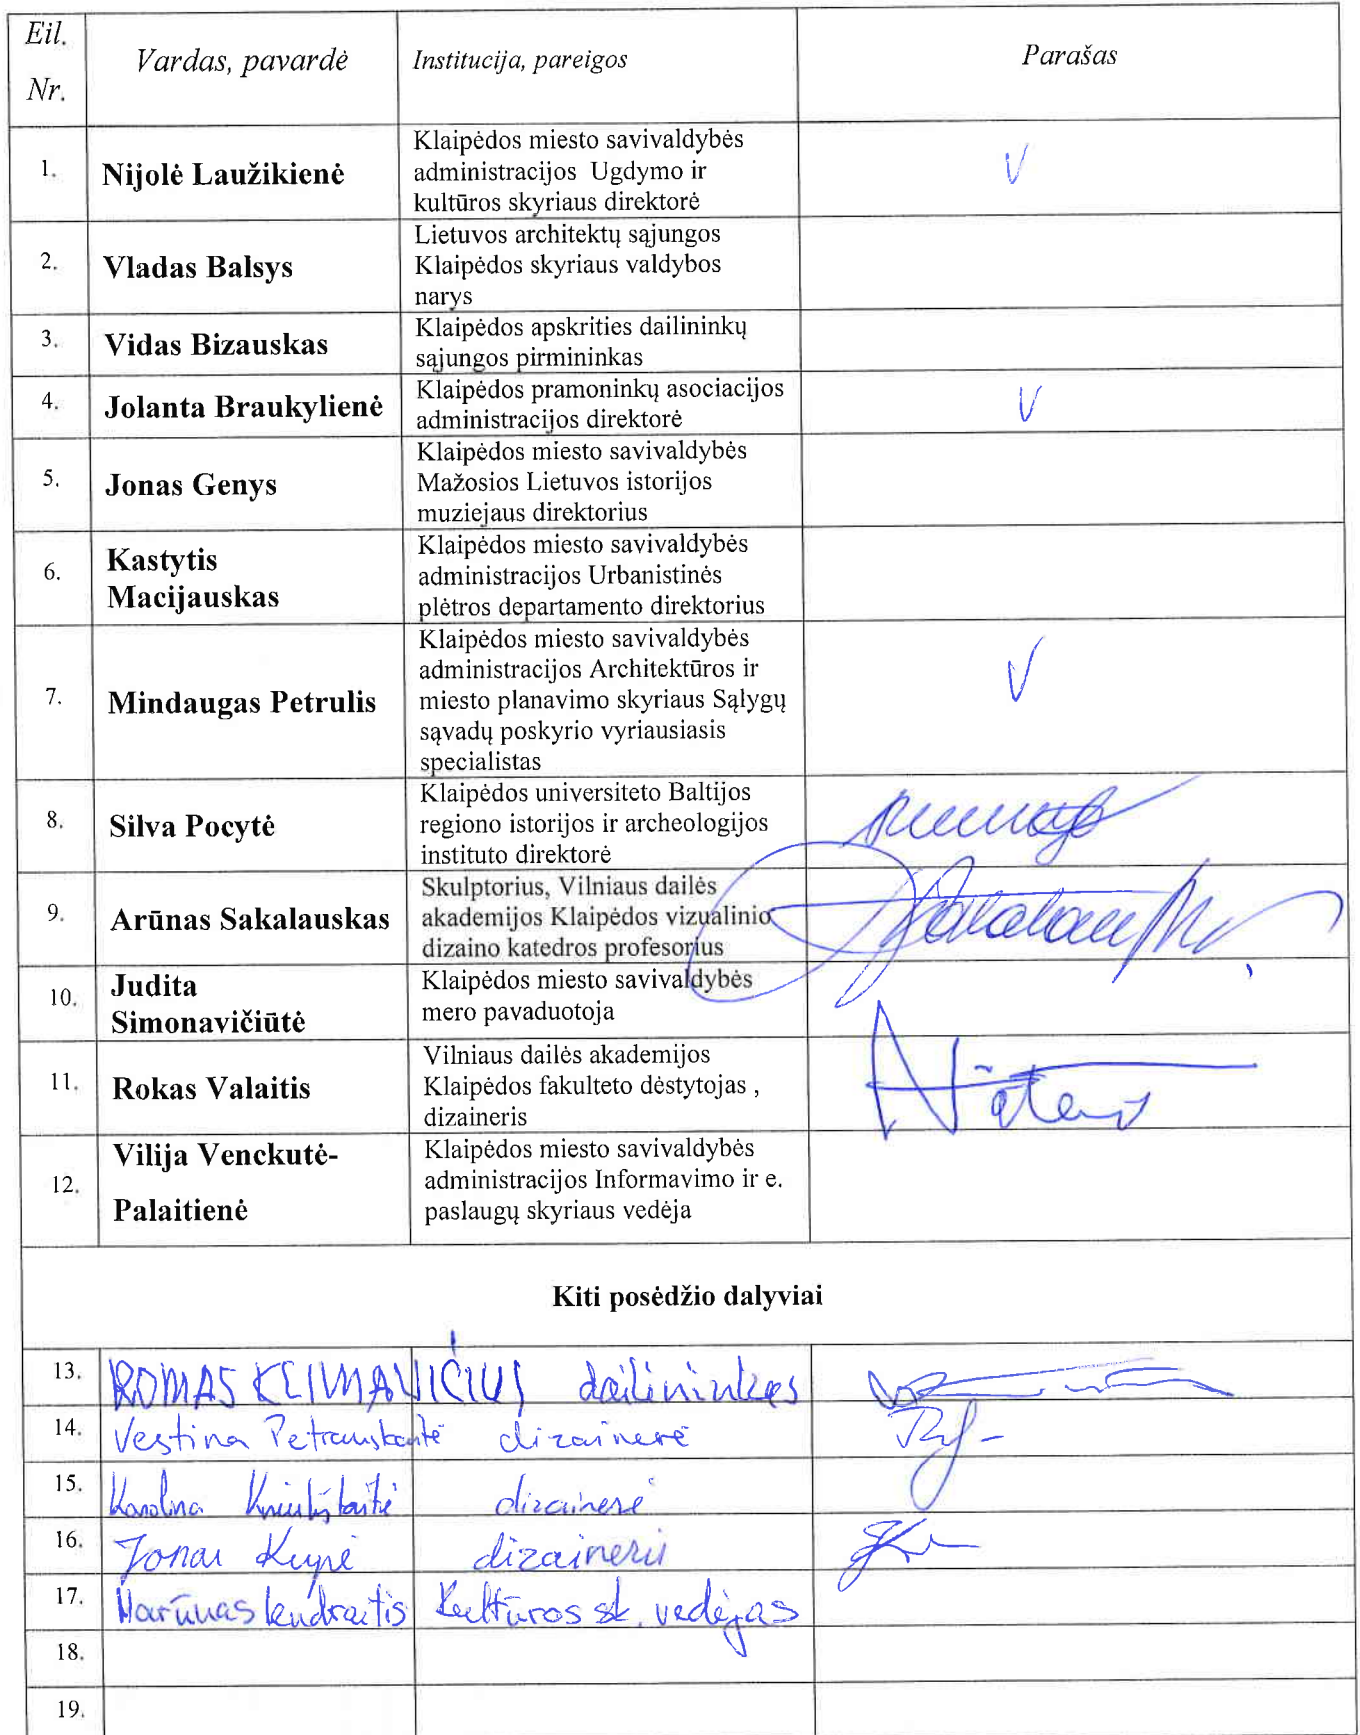 Eil.
Nr.
Vardas, pavardė
Institucija, pareigos
Parašas
1.
Nijolė Laužikienė
Klaipėdos miesto savivaldybės
administracijos Ugdymo ir
kultūros skyriaus direktorė
V
2.
Vladas Balsys
Lietuvos architektų sąjungos
Klaipėdos skyriaus valdybos
narys
3.
Vidas Bizauskas
Klaipėdos apskrities dailininkų
sąjungos pirmininkas
4.
Jolanta Braukylienė
Klaipėdos pramoninkų asociacijos
administracijos direktorė
V
5.
Jonas Genys
Klaipėdos miesto savivaldybės
Mažosios Lietuvos istorijos
muziejaus direktorius
6.
Kastytis
Macijauskas
Klaipėdos miesto savivaldybės
administracijos Urbanistinės
plėtros departamento direktorius
7.
Mindaugas Petrulis
Klaipėdos miesto savivaldybės
administracijos Architektūros ir
miesto planavimo skyriaus Sąlygų
sąvadų poskyrio vyriausiasis
specialistas
V
8.
Silva Pocytė
Klaipėdos universiteto Baltijos
regiono istorijos ir archeologijos
instituto direktorė
9.
Arūnas Sakalauskas
Skulptorius, Vilniaus dailės
akademijos Klaipėdos vizualinio
dizaino katedros profesorius
10.
Judita
Simonavičiūtė
Klaipėdos miesto savivaldybės
mero pavaduotoja
11.
Rokas Valaitis
Vilniaus dailės akademijos
Klaipėdos fakulteto dėstytojas ,
dizaineris
12.
Vilija Venckutė-
Palaitienė
Klaipėdos miesto savivaldybės
administracijos Informavimo ir e.
paslaugų skyriaus vedėja
Kiti posėdžio dalyviai
13.
ROMAS KLIMAVIČIUS dailininkas
14.
Vestina Petrauskaitė dizainerė
15.
Karolina dizainerė
16.
Jonas dizaineris
17.
Kultūros sk. vedėjas
18.
19.